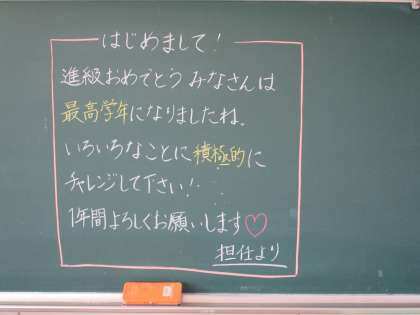 はじめまして!
進級おめでとう みなさんは
最高学年になりましたね。
いろいろなことに積極的に
チャレンジして下さい!
1年間よろしくお願いします♡
担任より